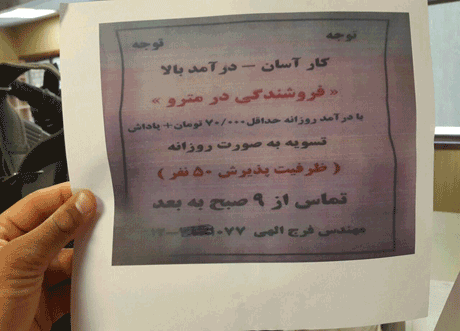 توجه توجه
کار آسان – درآمد بالا
« فروشندگی در مترو »
با درآمد روزانه حداقل ۷۰/۰۰۰ تومان + پاداش
تسویه به صورت روزانه
( ظرفیت پذیرش ۵۰ نفر )
تماس از ۹ صبح به بعد
مهندس فرج الهی ۰۷۷